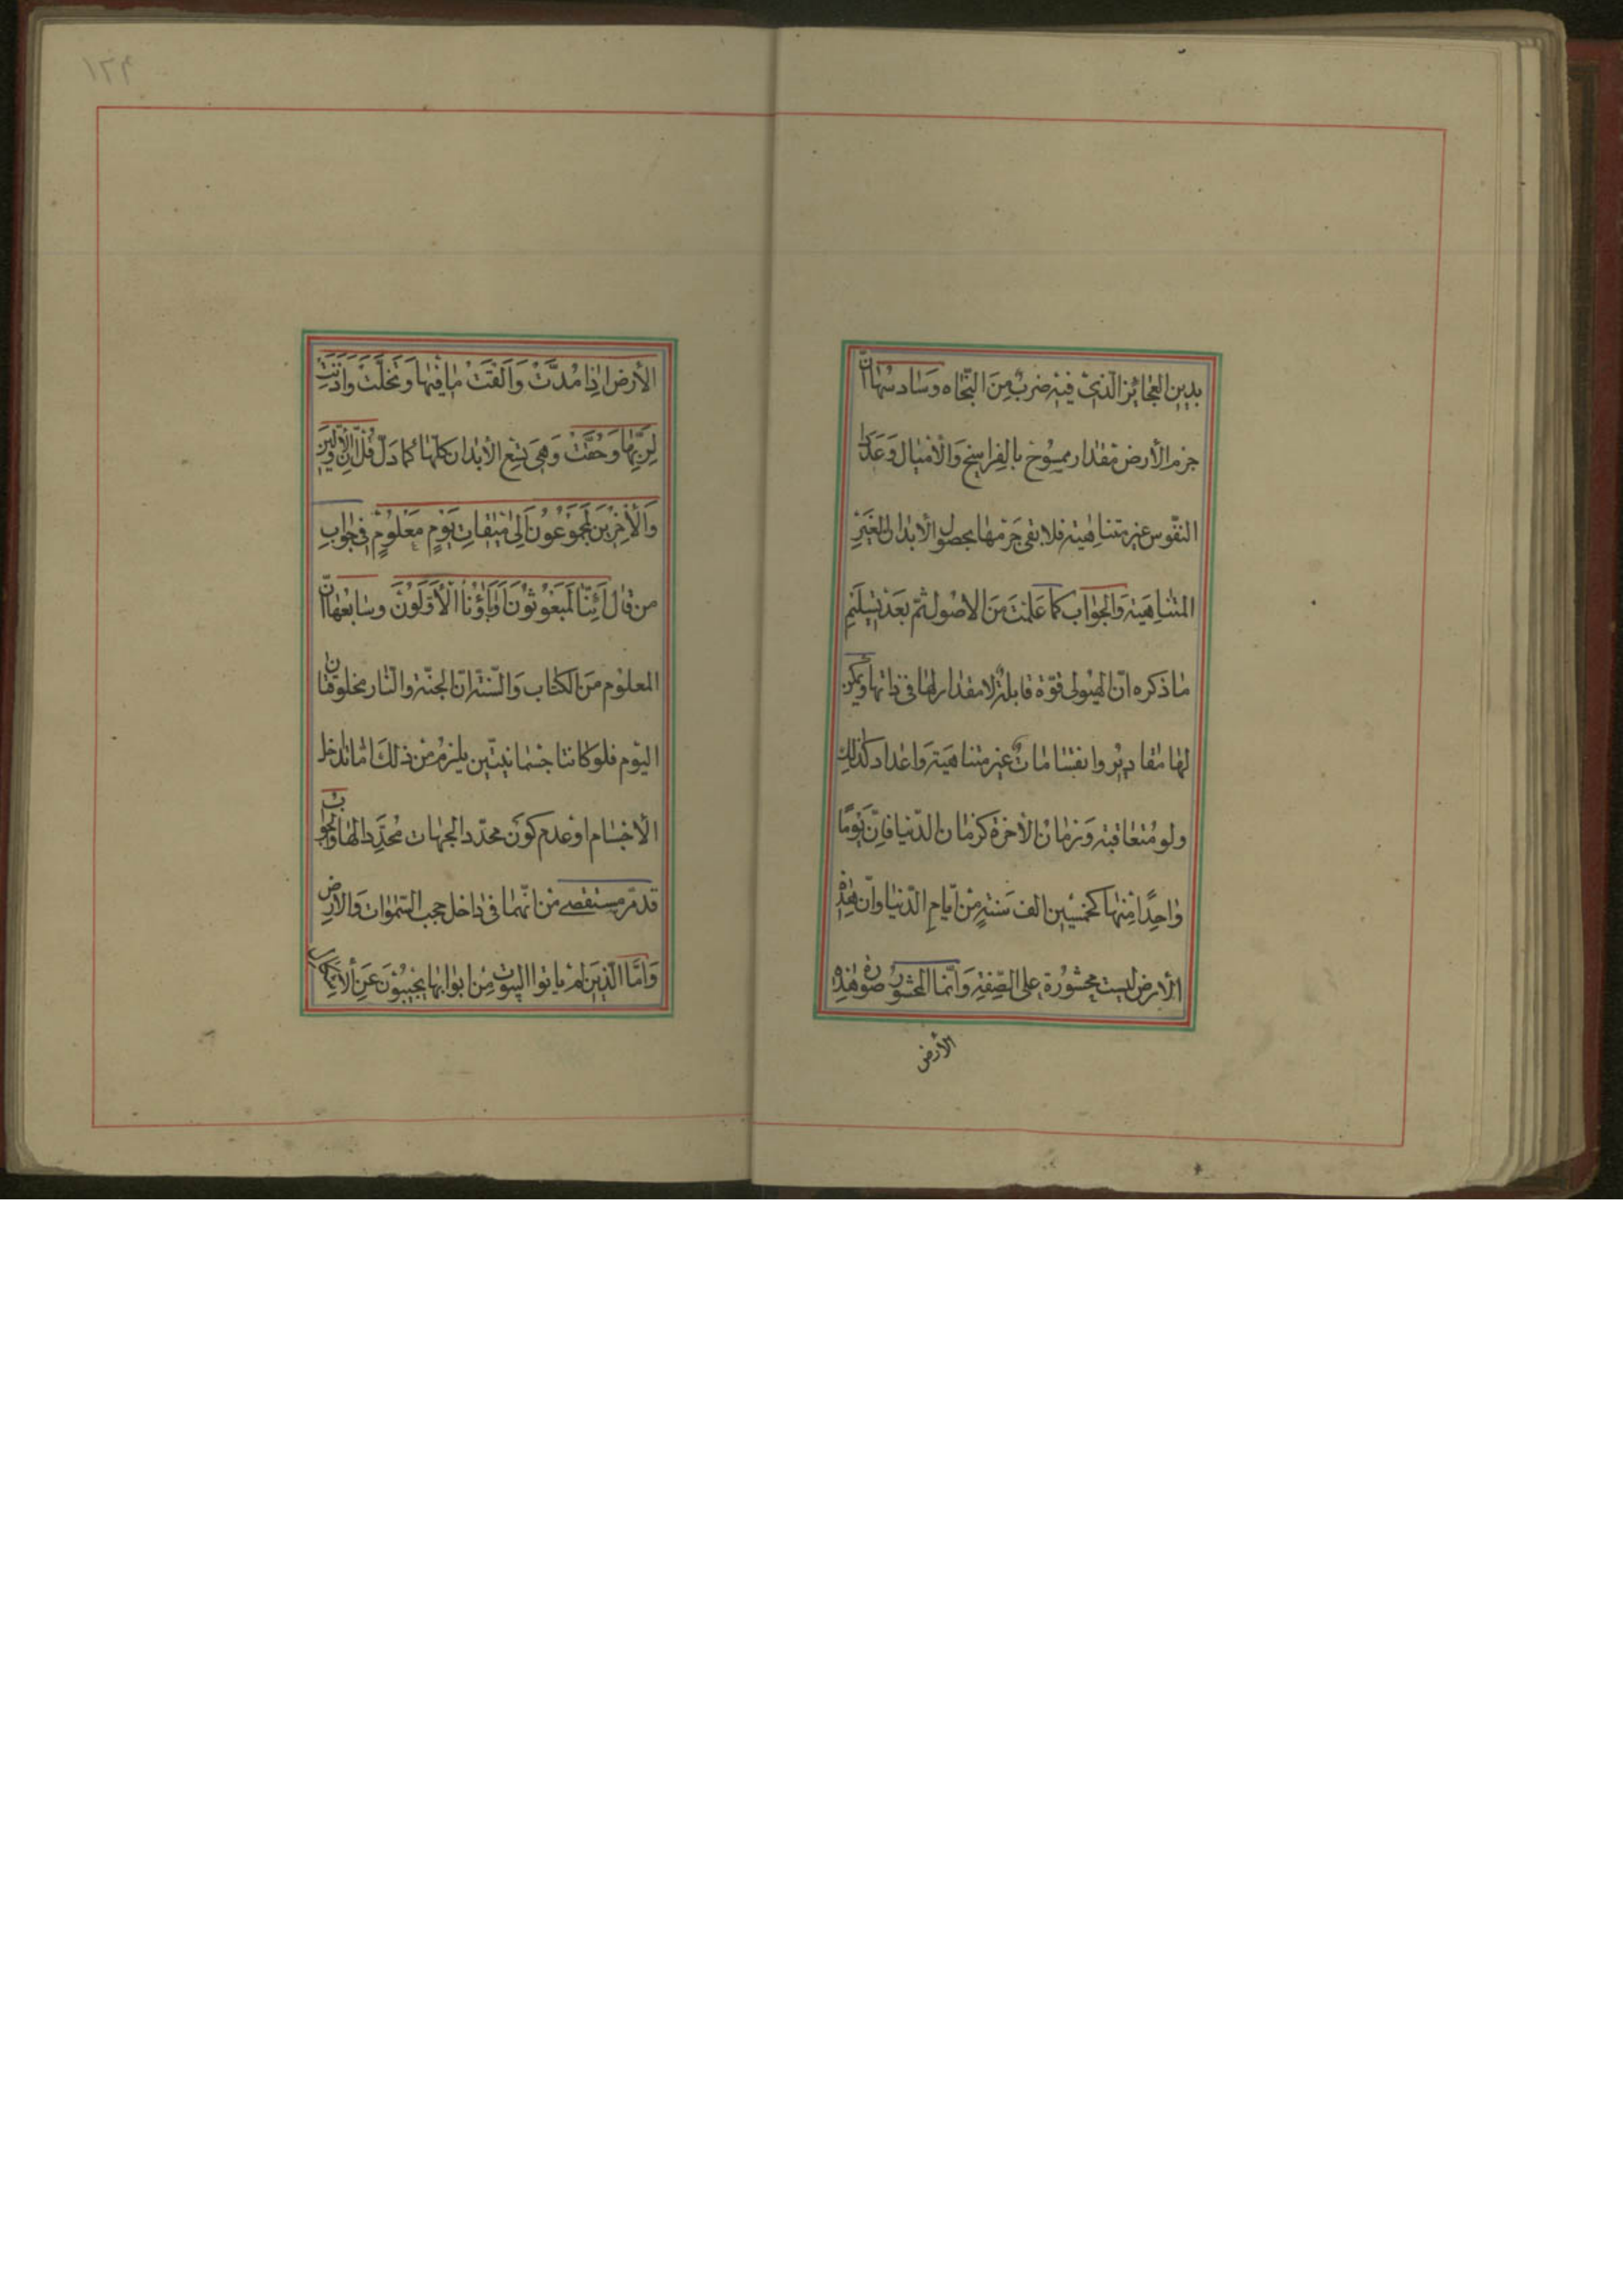 بدين العجائز الّذي فيه ضربٌ من النّجاه وسادسها انّ
جرم الأرض مقدار ممسوح بالفراسخ والأميال وعدد
النفوس غير متناهية فلا يفي جرمها بحصول الأبدان الغير
المتناهية والجواب كما علمت من الاصول ثمّ بعد تسليم
ما ذكره انّ الهيولى قوّة قابلة لا مقدار لها في ذاتها ويمكن
لها مقادير وانقسامات غير متناهية واعداد كذلك
ولو متعاقبة وزمان الأخرة كزمان الدّنيا فانّ يومًا
واحدًا منها كخمسين الف سنةٍ من ايّام الدّنيا وانّ هذه
الأرض ليست محشورة على الصّفة وانّما المحشورة صوهذه
الأرض
١٦٩
الأرض اذا مُدّتْ وَألقَتْ ما فيها وتخلّتْ وأذنت
لربّها وحُقّتْ وهي تسع الأبدان كلّها كما دلّ قل انّ الأوّلين
والأخرين لمجموعون الى ميقات يوم معلوم في جواب
من قال أئنّا لمبعوثون اوآباؤنا الأوّلون وسابعها انّ
المعلوم من الكتاب والسّنّة انّ الجنّة والنّار مخلوقتان
اليوم فلو كانتا جسمانيّتين يلزم من ذلك امّا تداخل
الأجسام او عدم كون محدّد الجهات محدّدا لها والجواب
قد مرّ مستقصى من انّهما في داخل حجب السّموات والأرض
وامّا الّذين لم ياتوا البيوت من ابوابها يجيبون عن